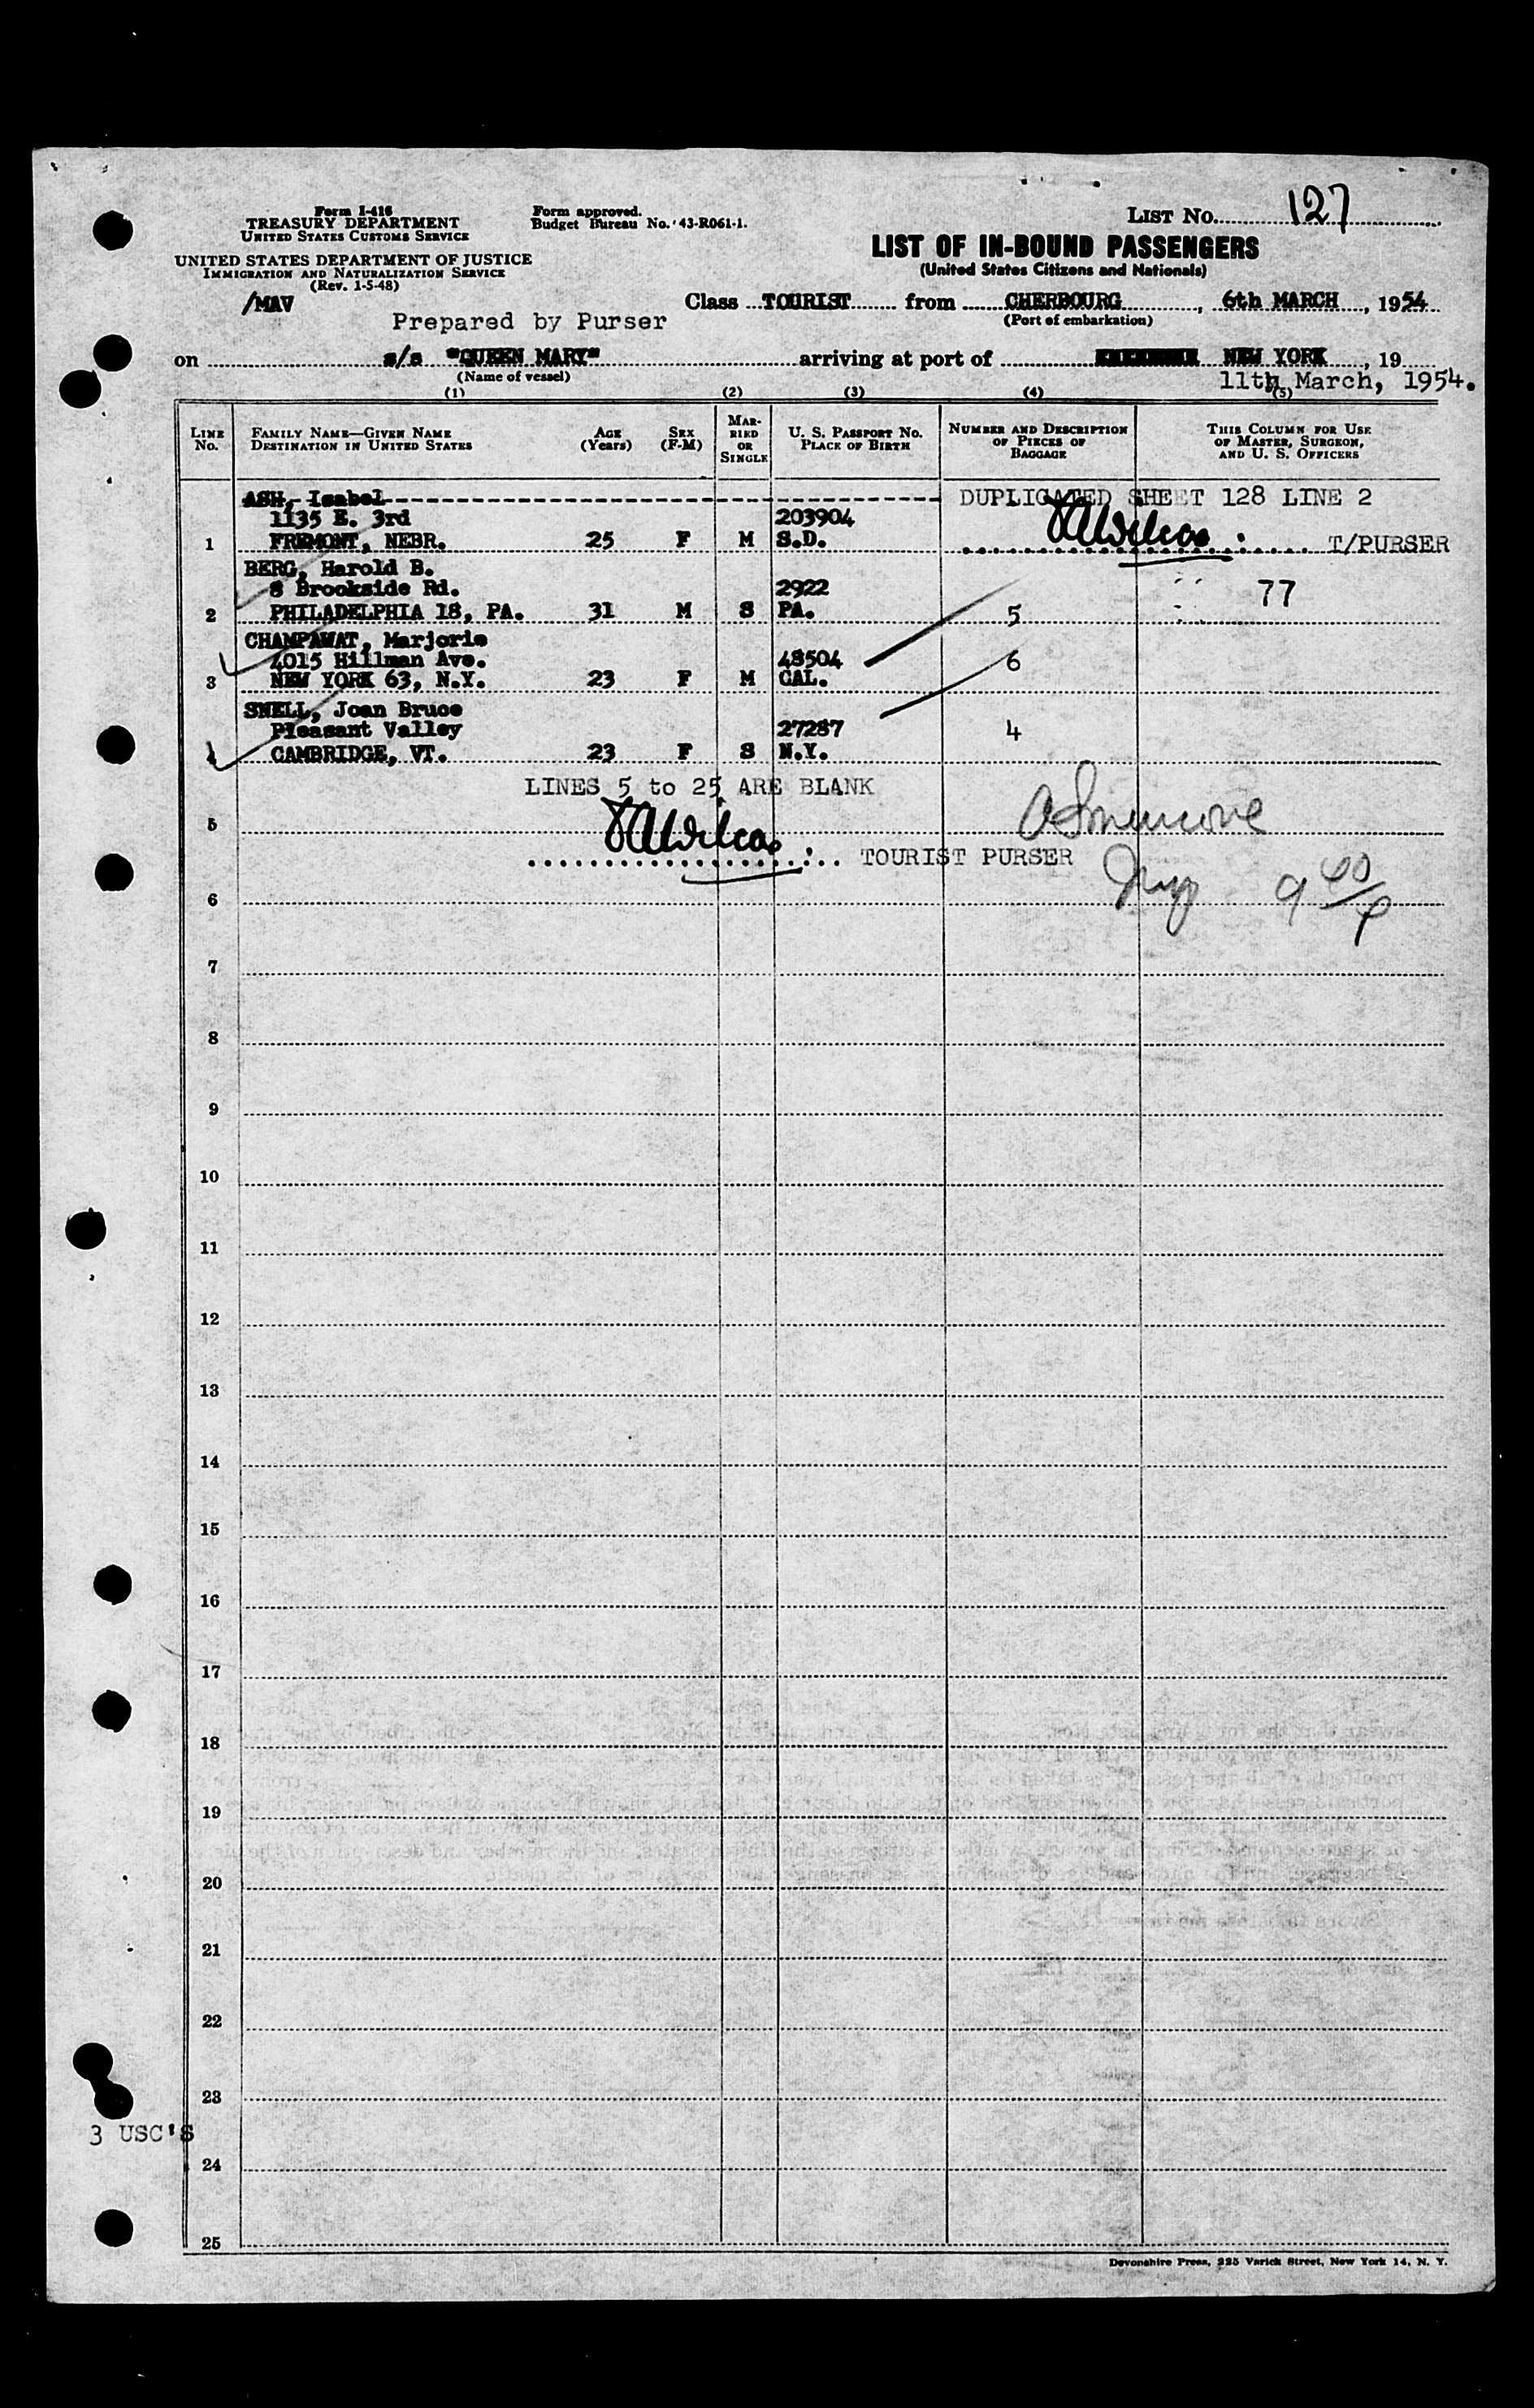 Form I-416
TREASURY DEPARTMENT
UNITED STATES CUSTOMS SERVICE
UNITED STATES DEPARTMENT OF JUSTICE
IMMIGRATION AND NATURALIZATION SERVICE
(Rev. 1-5-48)
/MAV
Form approved.
Budget Bureau No. 43-R061-1.
LIST No. 127
LIST OF IN-BOUND PASSENGERS
(United States Citizens and Nationals)
Class TOURIST from CHERBOURG, 6th MARCH, 1954
(Port of embarkation)
Prepared by Purser
on s/s "QUEEN MARY" arriving at port of NEW YORK, 19
(Name of vessel)
11th March, 1954.
(1) (2) (3) (4) (5)
LINE No. FAMILY NAME—GIVEN NAME DESTINATION IN UNITED STATES AGE (Years) SEX (F-M) MARRIED OR SINGLE U. S. PASSPORT No. PLACE OF BIRTH NUMBER AND DESCRIPTION OF PIECES OF BAGGAGE THIS COLUMN FOR USE OF MASTER, SURGEON, AND U. S. OFFICERS
ASH, Isabel DUPLICATED SHEET 128 LINE 2
1135 E. 3rd 203904
1 FREMONT, NEBR. 25 F M S.D. T/PURSER
BERG, Harold B.
8 Brookside Rd. 2922 77
2 PHILADELPHIA 18, PA. 31 M S PA. 5
CHAMPAWAT, Marjorie
4015 Hillman Ave. 48504 6
3 NEW YORK 63, N.Y. 23 F M CAL.
SNELL, Joan Bruce
Pleasant Valley 27287 4
4 CAMBRIDGE, VT. 23 F S N.Y.
LINES 5 to 25 ARE BLANK
5
TOURIST PURSER
6
7
8
9
10
11
12
13
14
15
16
17
18
19
20
21
22
23
3 USC'S
24
25
Devonshire Press, 225 Varick Street, New York 14, N. Y.